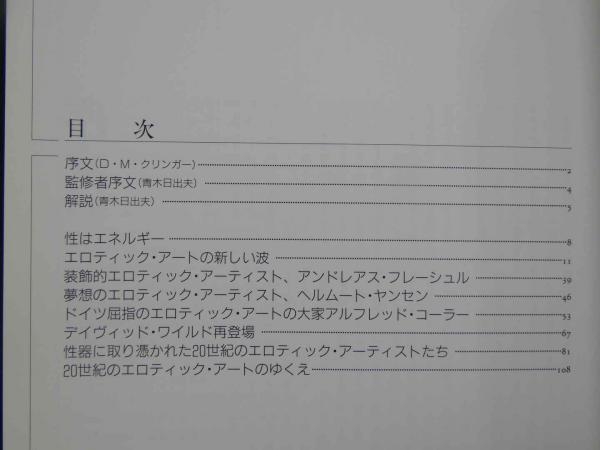 目　次
序文(D・M・クリンガー) 2
監修者序文(青木日出夫) 4
解説(青木日出夫) 5
性はエネルギー 8
エロティック・アートの新しい波 11
装飾的エロティック・アーティスト、アンドレアス・フレーシュル 39
夢想のエロティック・アーティスト、ヘルムート・ヤンセン 46
ドイツ屈指のエロティック・アートの大家アルフレッド・コーラー 53
デイヴィッド・ワイルド再登場 67
性器に取り憑かれた20世紀のエロティック・アーティストたち 81
20世紀のエロティック・アートのゆくえ 108